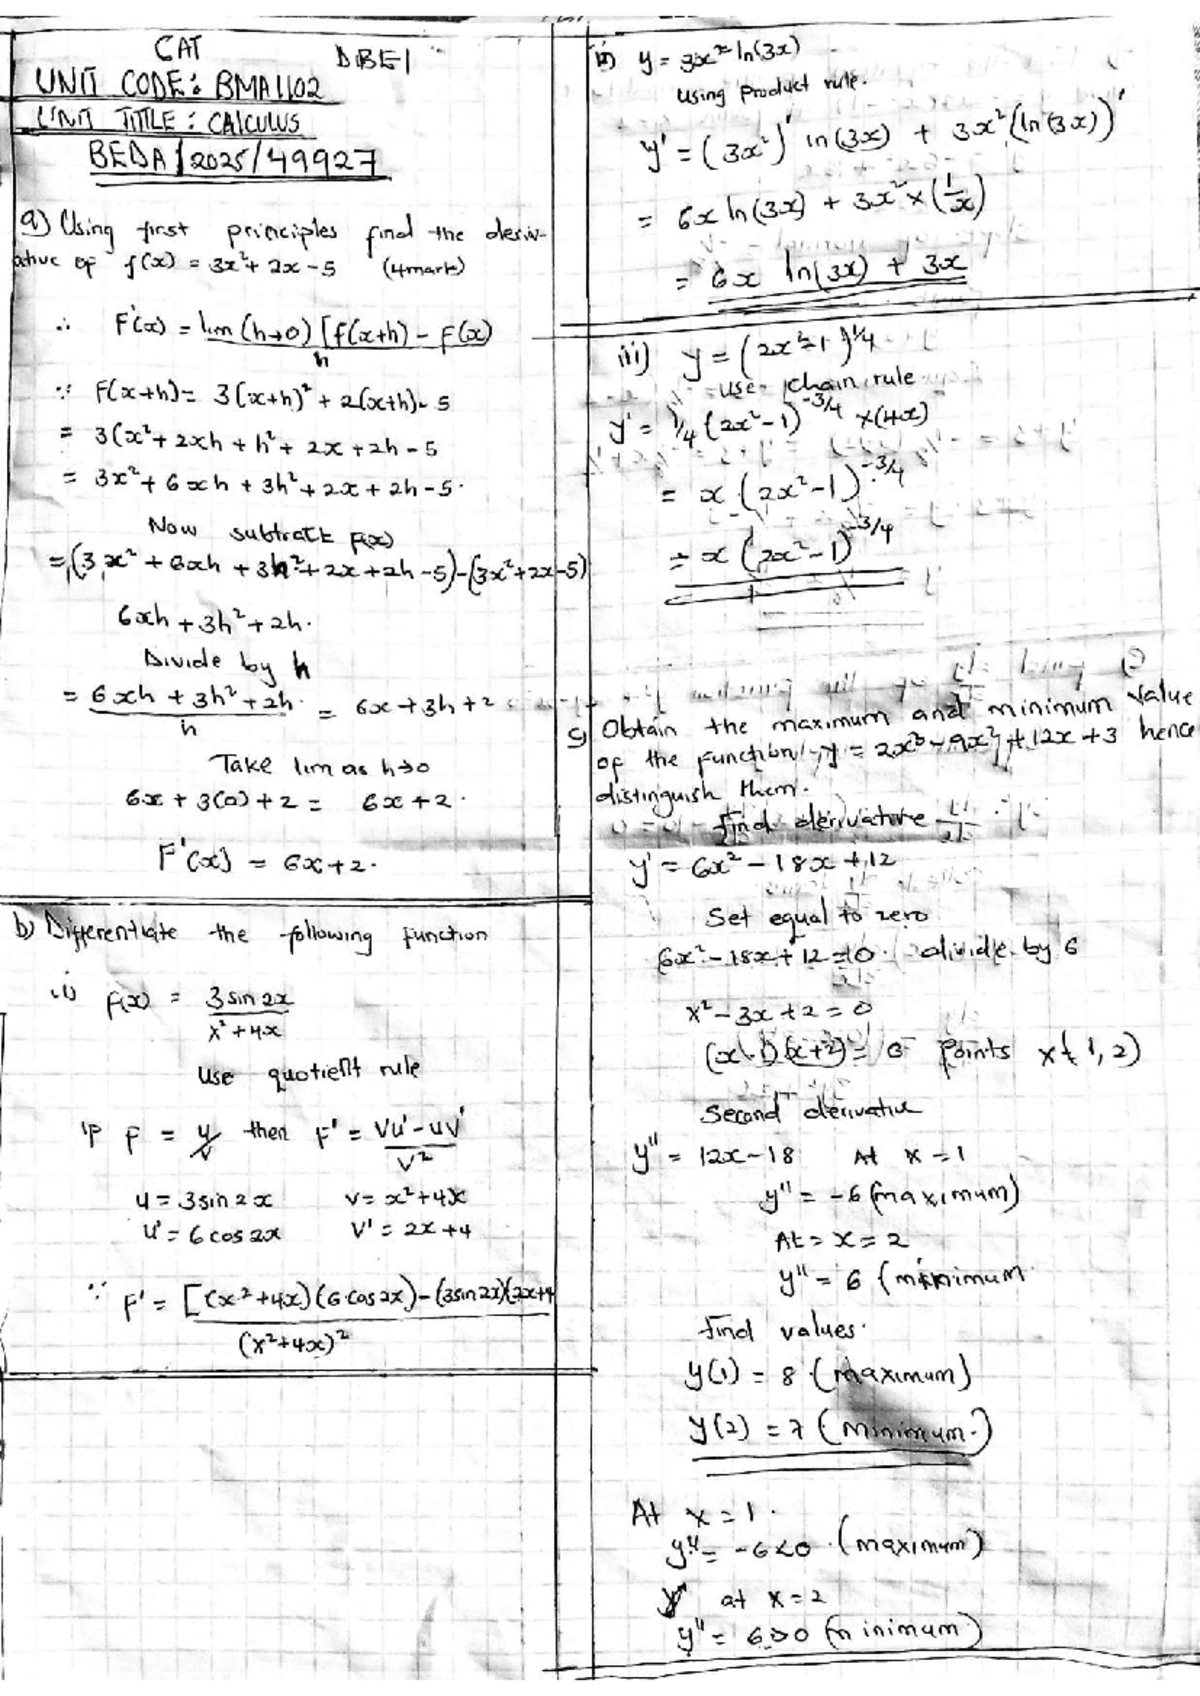 CAT DBE1
UNIT CODE: BMA1102
UNIT TITLE: CALCULUS
BEDA/2025/49927
a) Using first principles find the deriv-
ative of f(x) = 3x²+ 2x - 5 (4marks)
∴ F'(x) = lim (h→0) [f(x+h) - F(x)
h
∵ F(x+h) = 3(x+h)² + 2(x+h) - 5
= 3(x²+ 2xh + h²+ 2x + 2h - 5
= 3x²+ 6xh + 3h²+ 2x + 2h - 5.
Now subtract F(x)
= (3x² + 6xh + 3h²+ 2x + 2h - 5) - (3x²+2x-5)
6xh + 3h²+ 2h.
Divide by h
= 6xh + 3h² + 2h = 6x + 3h + 2
h
Take lim as h→0
6x + 3(0) + 2 = 6x + 2.
F'(x) = 6x + 2.
b) Differentiate the following function
i) F(x) = 3 sin 2x
x² + 4x
Use quotient rule
IF F = u/v then F' = Vu' - uv'
V²
u = 3 sin 2x V = x² + 4x
u' = 6 cos 2x V' = 2x + 4
∵ F' = [(x² + 4x)(6 cos 2x) - (3sin 2x)(2x+4
(x²+4x)²
ii) y = 3x² ln(3x)
using product rule.
y' = (3x²)' ln(3x) + 3x² (ln(3x))'
= 6x ln(3x) + 3x² × (1/x)
= 6x ln(3x) + 3x
iii) y = (2x²-1)^1/4
use chain rule
y' = 1/4 (2x²-1)^-3/4 × (4x)
= x (2x²-1)^-3/4
= x (2x²-1)^-3/4
c) Obtain the maximum and minimum value
of the function y = 2x³ - 9x² + 12x + 3 hence
distinguish them.
find derivative
y' = 6x² - 18x + 12
Set equal to zero
6x² - 18x + 12 = 0 divide by 6
x² - 3x + 2 = 0
(x-1)(x+2) = 0 points x(1, 2)
Second derivative
y'' = 12x - 18 At x = 1
y'' = -6 (maximum)
At = x = 2
y'' = 6 (minimum
find values.
y(1) = 8 (maximum)
y(2) = 7 (minimum.)
At x = 1.
y'' = -6 < 0 (maximum)
at x = 2
y'' = 6 > 0 (minimum)